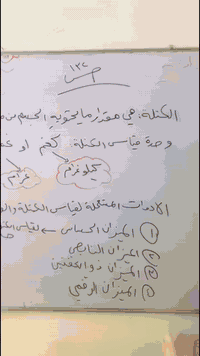 ص ١٣٢
الكتلة: هي مقدار ما يحتويه الجسم من
وحدة قياس الكتلة كغم او غم
كيلوغرام غرام
الادوات المستعملة لقياس الكتلة والو
① الميزان الحساس
② الميزان النابضي
③ الميزان ذو الكفتين
④ الميزان الرقمي